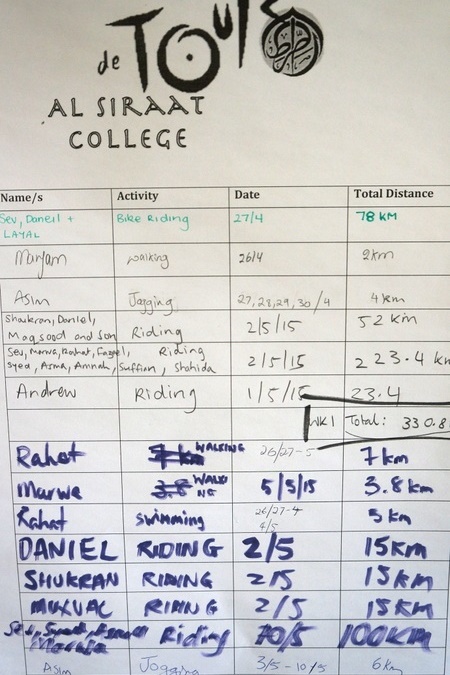 de TOUR
AL SIRAAT
COLLEGE
Name/s Activity Date Total Distance
Sev, Daneil + LAYAL Bike Riding 27/4 78 KM
Maryam walking 26/4 2km
Asim Jogging 27,28,29,30/4 4km
Shukran, Daniel,
Maqsood and Son Riding 2/5/15 52 km
Sev, Marwa, Rahat, Riding
Syed, Asma, Amnah, Suffian, Shahida 2/5/15 223.4 km
Andrew Riding 1/5/15 23.4
WK1 Total: 330.8
Rahat WALKING 26/27-5 7km
Marwe WALKI NG 5/5/15 3.8km
Rahat swimming 26/27-4 4/5 5km
DANIEL RIDING 2/5 15km
SHUKRAN RIDING 2/5 15km
RIDING 2/5 15km
Sev, Riding 10/5 100KM
Asim Jogging 3/5-10/5 6km